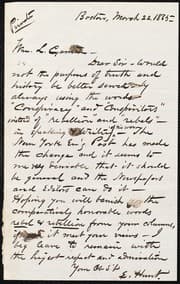 Private
Boston, March 22 1885.
Wm. L Garrison
Dear Sir - Would
not the purposes of truth and
history be better served by
always using the words
"Conspiracy" and "Conspirators"
instead of "rebellion" and "rebels" -
in speaking & writing - The
New York Eng Post has made
the change and it seems to
me that it should
be general and the Newspapers
and Editors can do it -
Hoping you will banish the
comparatively honorable words
rebel & rebellion from your columns,
if it meet your views - I
beg leave to remain with
the highest respect and admiration
Your Ob St
E. Hunt.